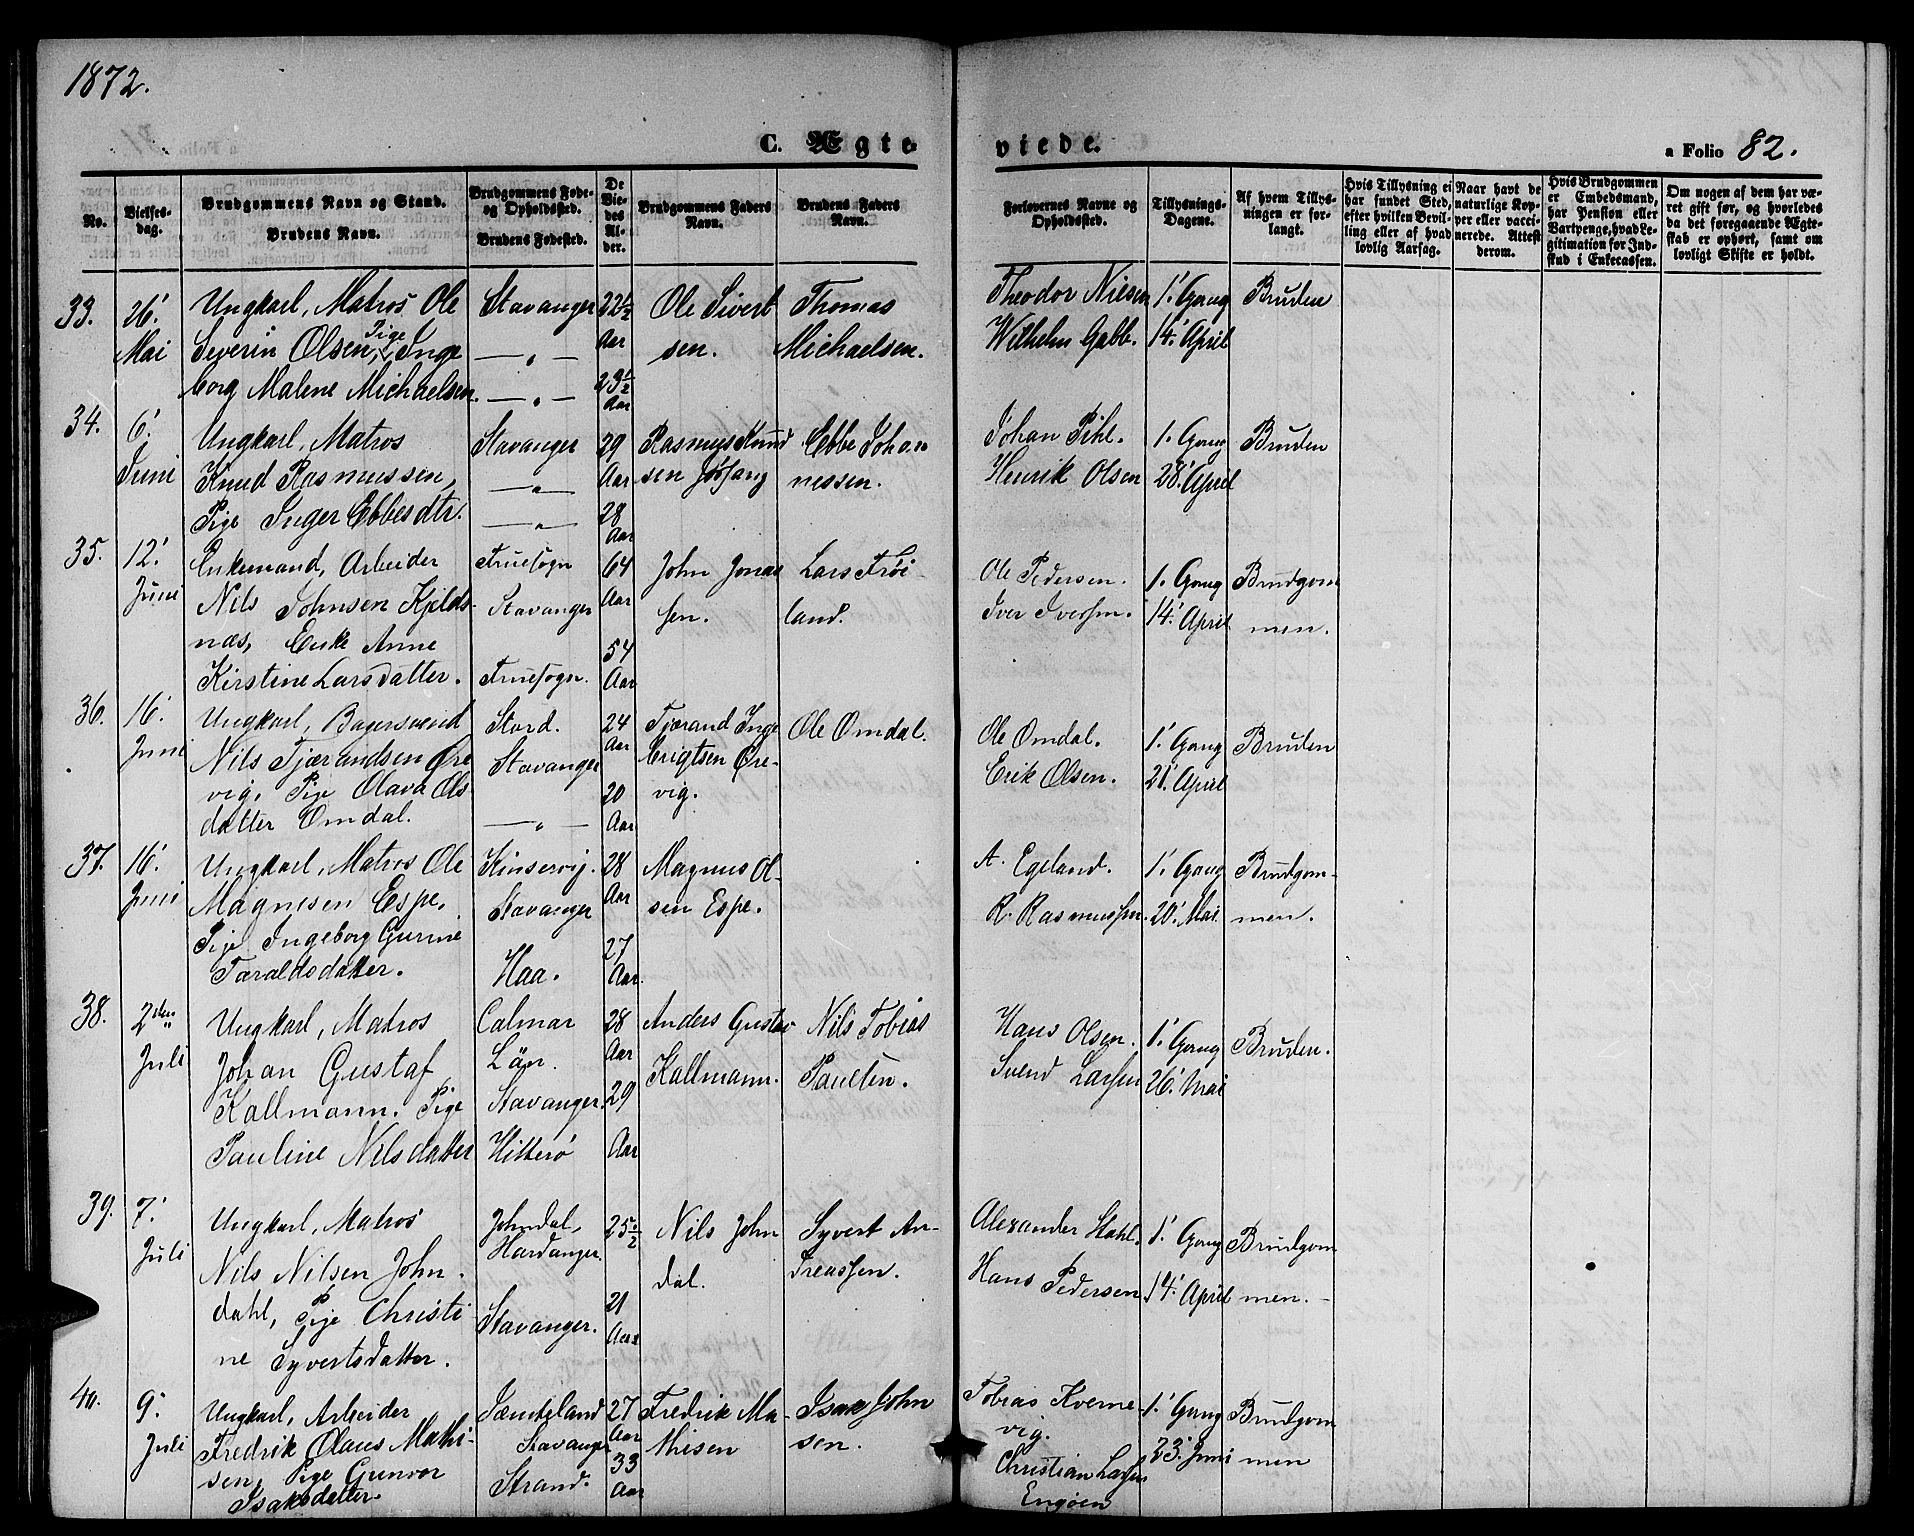 1872.
C. Ægte viede.
a Folio 82.
No. | Vielses-dag. | Brudgommens Navn og Stand. Brudens Navn. | Brudgommens Føde- og Opholdssted. Brudens Fødested. | De Viedes Alder. | Brudgommens Faders Navn. | Brudens Faders Navn. | Forlovernes Navne og Opholdssted. | Tillysnings-Dagene. | Af hvem Tillysningen er forlangt. | Hvis Tillysning ei har fundet Sted, efter hvilken Bevilling eller af hvad lovlig Aarsag. | Naar havt de naturlige Kopper eller vaccinerede. Attest derom. | Hvis Brudgommen er Embedsmand, har Pension eller Vartpenge, hvad Legitimation for Indskud i Enkecassen. | Om nogen af dem har været gift før, og hvorledes da det foregaaende Ægteskab er ophørt, samt om lovligt Skifte er holdt.
33. | 26' | Ungkarl, Matros Ole | Stavanger | 22½ | Ole Sivert | Thomas | Theodor Nielsen | 1' Gang | Bruden
Mai | Severin Olsen, Pige Inge | —„— | Aar | sen. | Michaelsen. | Wilhelm Gabb. | 14' April
borg Malene Michaelsen. | —„— | 23½ Aar
34. | 6' | Ungkarl, Matros | Stavanger | 29 | Rasmus Knud | Ebbe Johan | Johan Pihl. | 1' Gang | Bruden
Juni | Knud Rasmussen, | —„— | Aar | sen Jøsfang | nessen. | Henrik Olsen | 28' April
Pige Inger Ebbesdtr. | —„— | 28 Aar
35. | 12' | Enkemand, Arbeider | Fruesogn | 64 | John Jonas | Lars Frøi | Ole Pedersen. | 1' Gang | Brudgom
Juni | Nils Johnsen Kjelds- | Stavanger | Aar | sen. | land. | Iver Iversen. | 14' April | men.
næs, Enke Anne | 54
Kirstine Larsdatter. | Fruesogn. | Aar
36. | 16' | Ungkarl, Bagersvend | Stord. | 24 | Tjærand Inge | Ole Omdal. | Ole Omdal. | 1' Gang | Bruden
Juni | Nils Tjærandsen Øre | Stavanger | Aar | brigtsen Øre- | Erik Olsen. | 21' April
vig. Pige Olava Ols | 20 | vig.
datter Omdal. | —„— | Aar
37. | 16' | Ungkarl, Matros Ole | Kinservig. | 28 | Magnus Ol- | A. Egeland. | 1' Gang | Brudgom-
Juni | Magnesen Espe. | Stavanger | Aar | sen Espe. | R. Rasmussen. | 20' Mai | men.
Pige Ingeborg Gurine | 27
Taraldsdatter. | Haa. | Aar
38. | 2den | Ungkarl, Matros | Calmar | 28 | Anders Gustav | Nils Tobias | Hans Olsen. | 1' Gang | Bruden.
Juli | Johan Gustaf | Län. | Aar | Kallmann. | Paulsen. | Svend Larsen | 26' Mai
Kallmann. Pige | Stavanger. | 29
Pauline Nilsdatter | Hitterø | Aar
39. | 7' | Ungkarl, Matros | Johndal, | 25½ | Nils John | Syvert An- | Alexander Stahl. | 1' Gang | Brudgom
Juli | Nils Nilsen John. | Hardanger. | dal. | dreassen. | Hans Pedersen | 14' April | men.
dahl, Pige Christi | Stavanger. | 21
ne Syvertsdatter. | Aar
40. | 9' | Ungkarl, Arbeider | Jæmteland | 27 | Fredrik Ma- | Isak John | Tobias Kverne- | 1' Gang | Brudgom
Juli | Fredrik Olaus Mathi- | Stavanger | Aar | thisen | sen. | vig. | 23' Juni | men
sen, Pige Gunvor | Strand. | 33 | Christian Larsen
Isaksdatter. | Aar | Engøen